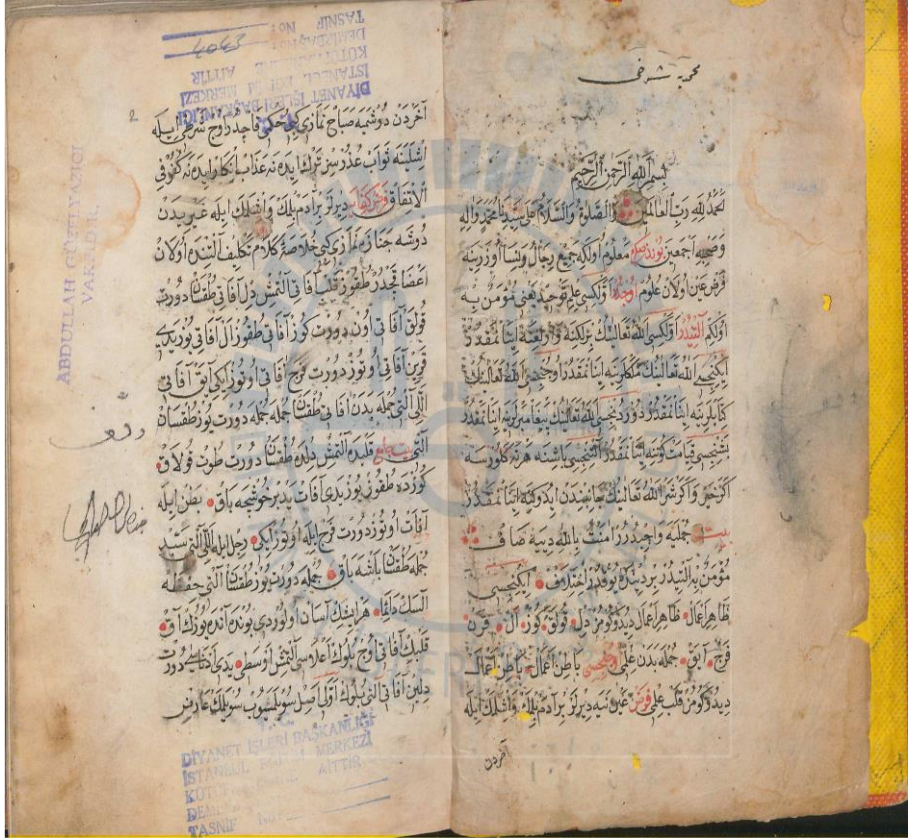 بسم الله الرحمن الرحيم
الحمد لله رب العالمين والصلاة والسلام على سيدنا محمد واله
وصحبه اجمعين بوندن صكره معلوم اولكه جميع رجال ونسا اوزرينه
فرض عين اولان علوم اوچدر اولكسى علم توحيد يعنى مؤمن به
اولكم التيدر اولكسى الله تعالينك برلكنه وارلغنه اينانمقدر
ايكنجيسى الله تعالينك ملكلرينه اينانمقدر اوچنجيسى الله تعالينك
كتابلرينه اينانمقدر دوردنجيسى الله تعالينك پيغامبرلرينه اينانمقدر
بشنجيسى قيامت كوننه اينانمقدر التنجيسى باشنه هر نه كلورسه
اكر خير واكر شر الله تعالينك جانبندن ايدوكينه اينانمقدر
بيت جمليه واجبدر امنت بالله ديه صاف
مؤمن به التيدر برديلكده يوقدر اختلاف ايكنجيسى
ظاهر اعمال ظاهر اعمال ديدوكومز دل قولق كوز ال قرن
فرج ايق جمله بدن علمى اوچنجيسى باطن اعمال باطن اعمال
ديدوكومز قلب علمى فرض عين نيه ديرلر بر آدم بلمك واشلمك ايله
آخردن
2
4043
آخردن دوشميه صباح نمازى كبى
اشلينه ثواب عذرسز ترك ايدنه عذاب انكار ايدنه كفر فى
الاتفاق فرض كفايه ديرلر بر آدم بلمك واشلمك ايله غيريدن
دوشه جنازه نمازى كبى خلاصۀ كلام تكليف آلتنده اولان
اعضا قچدر طقوز قلب آفاتى آلتمش دل آفاتى طقسان دورت
قولق آفاتى اون دورت كوز آفاتى طقوز ال آفاتى يوز يدى
قرين آفاتى اوتوز دورت فرج آفاتى اوتوز ايكى ايق آفاتى
اللى آلتى جمله بدن آفاتى طقسان جمله جمله دورت يوز طقسان
آلتى بيت جامع قلبده آلتمش دلده طقسان دورت طوت قولاق
كوزده طقوز يوز يدى آفات يدبر خوشجه باق بطن ايله
آفات اوتوز دورت فرج ايله اوتوز ايكى رجل ايله اللى آلتى
جمله طقسان باشه باق جمله دورت يوز طقسان آلتى حفظله
السك دائما هر ايشك آسان اولوردى بونده آنده يوزك آق
قلبك آفاتى اوچ بلوك اعلاسى آلتمش اوسطى يدى ادناسى دورت
دلين آفاتى التى بلوك اولى اصل سويلمه يوب سويلمك عارض
DİYANET İŞLERİ BAŞKANLIĞI
İSTANBUL EĞİTİM MERKEZİ
KÜTÜPHANESİNE AİTTİR
DEMİRBAŞ No:
TASNİF No:
ABDULLAH GÜZELYAZICI
VAKFIDIR
وقف
DİYANET İŞLERİ BAŞKANLIĞI
İSTANBUL EĞİTİM MERKEZİ
AİTTİR
TASNİF No: